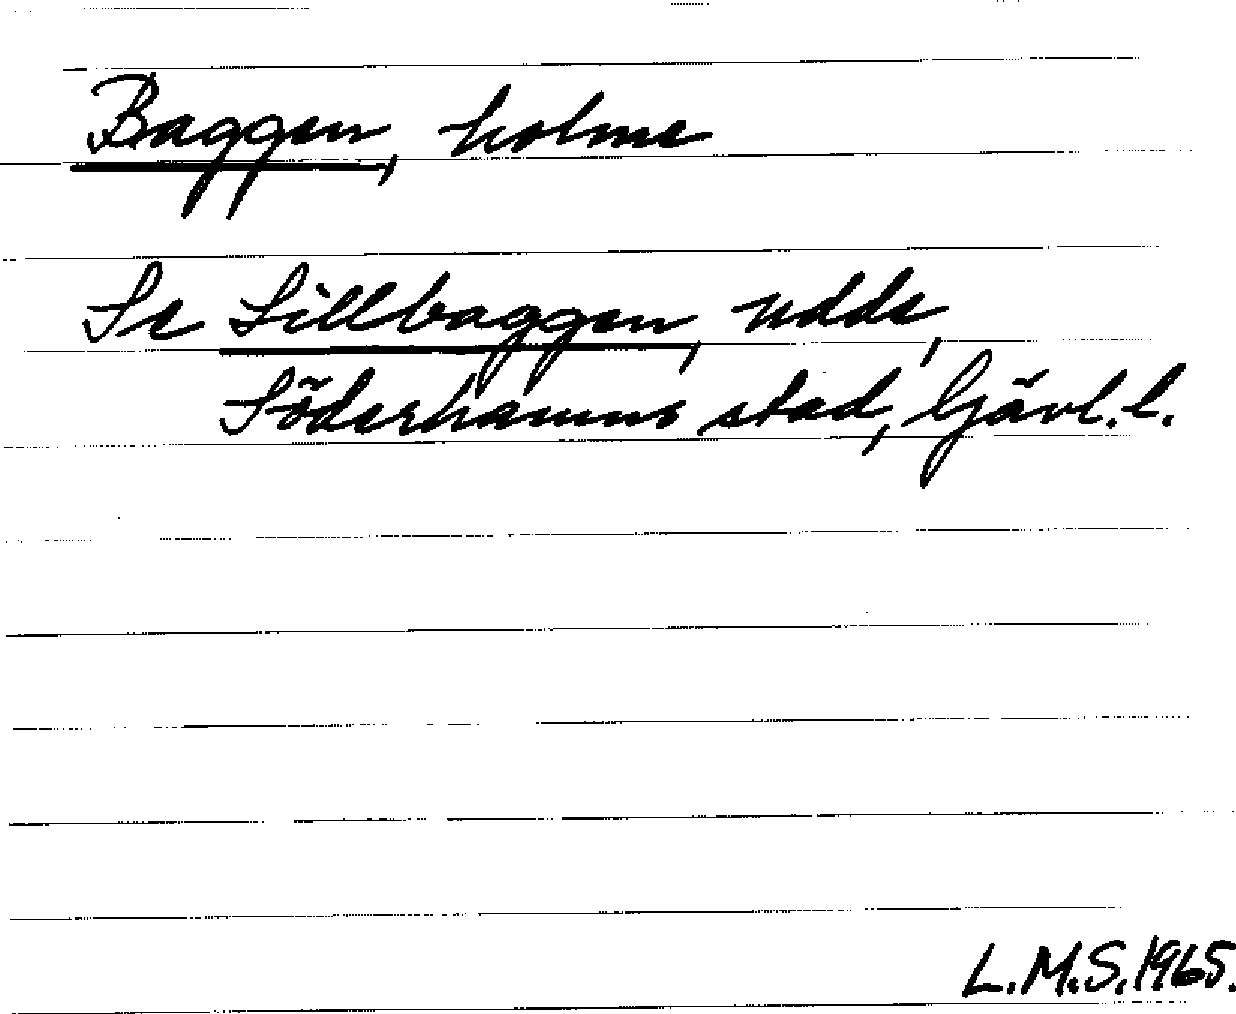 Baggen, holme
Se Sillbaggen, udde,
Söderhamns stad, Gävl.l.
L.M.S.1965.